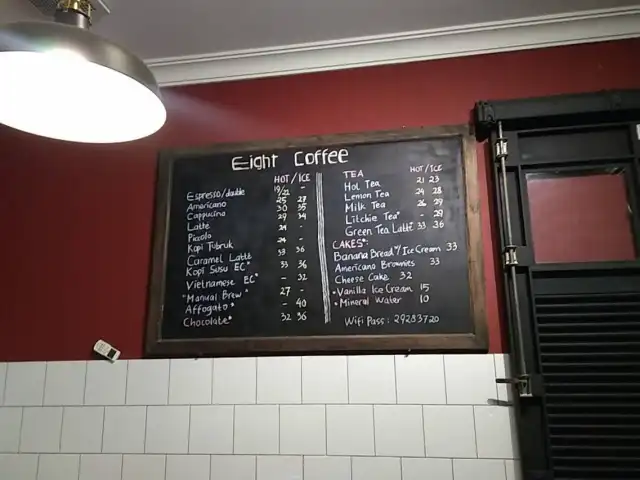 Eight Coffee
HOT / ICE
Espresso/double 19/21 -
Americano 25 27
Cappucino 30 35
Latte 29 34
Piccolo 24 -
Kopi Tubruk 24 -
Caramel Latte 33 36
Kopi Susu EC* 33 36
Vietnamese EC* - 32
"Manual Brew" 27 -
Affogato* - 40
Chocolate* 32 36
TEA HOT/ICE
Hot Tea 21 23
Lemon Tea 24 28
Milk Tea 26 29
Litchie Tea* - 29
Green Tea Latte 33 36
CAKES*:
Banana Bread w/ Ice Cream 33
Americano Brownies 33
Cheese Cake 32
• Vanilla Ice Cream 15
• Mineral Water 10
Wifi Pass: 29283720